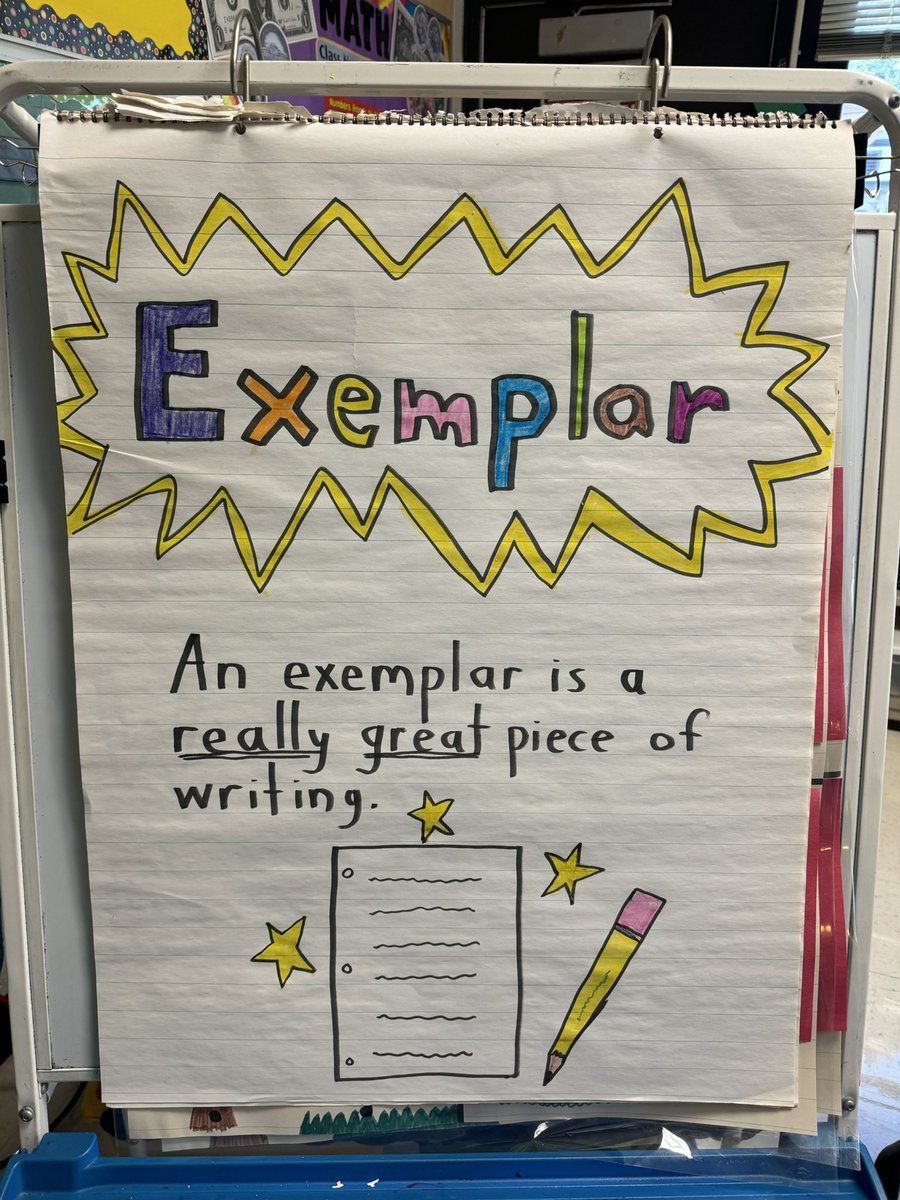 MATH
Exemplar
An exemplar is a
really great piece of
writing.